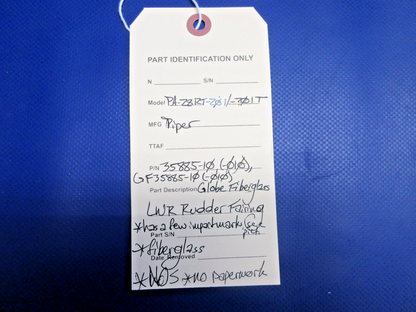 PART IDENTIFICATION ONLY
N S/N
Model PA-28RT-201/-301T
MFG Piper
TTAF
P/N 35885-10 (-010),
GF35885-10 (-010)
Part Description Globe Fiberglass
LWR Rudder Fairing
*has a few impact marks (see
Part S/N
*fiberglass
Date Removed
*NOS *no paperwork